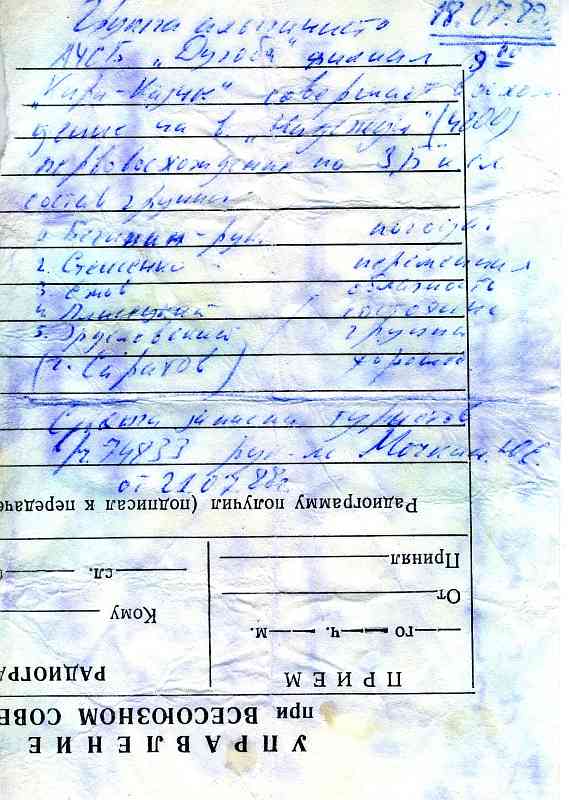 Группа альпинистов 18.07.89г.
АУСБ "Дугоба" филиал 9 00
"Кара-Казык" совершает восхож
дение на в. "Надежда" (4800)
первовосхождение по 3Б к сл
состав группы:
1. -рук. погода:
2. Стеценко переменная
3. Ежов облачность
4. Плисецкий состояние
5. группы
(г. Саратов) хорошее
Снята записка туристов
№. 74833 рук-ль Мочкин Ю.
от 21.07.88г.
Радиограмму получил (подписал к передаче
УПРАВЛЕНИЕ
при ВСЕСОЮЗНОМ СОВЕ
ПРИЕМ РАДИОГРА
го ч. м.
От Кому
Принял сл.